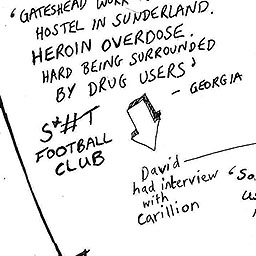 'GATESHEAD WORK
HOSTEL IN SUNDERLAND.
HEROIN OVERDOSE.
HARD BEING SURROUNDED
BY DRUG USERS'
- GEORGIA
S*#T
FOOTBALL
CLUB
David
had interview
with
Carillion